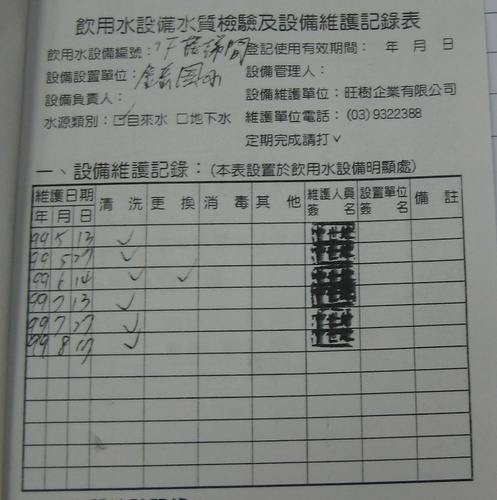 飲用水設備水質檢驗及設備維護記錄表
飲用水設備編號：1F 登記使用有效期間： 年 月 日
設備設置單位： 設備管理人：
設備負責人： 設備維護單位：旺樹企業有限公司
水源類別：☑自來水 □地下水 維護單位電話：(03)9322388
定期完成請打∨
一、設備維護記錄：(本表設置於飲用水設備明顯處)
維護日期 清洗 更換 消毒 其他 維護人員簽名 設置單位簽名 備註
年 月 日
99 5 13 ✓
99 5 27 ✓
99 6 14 ✓ ✓
99 7 13 ✓
99 7 27 ✓
99 8 17 ✓